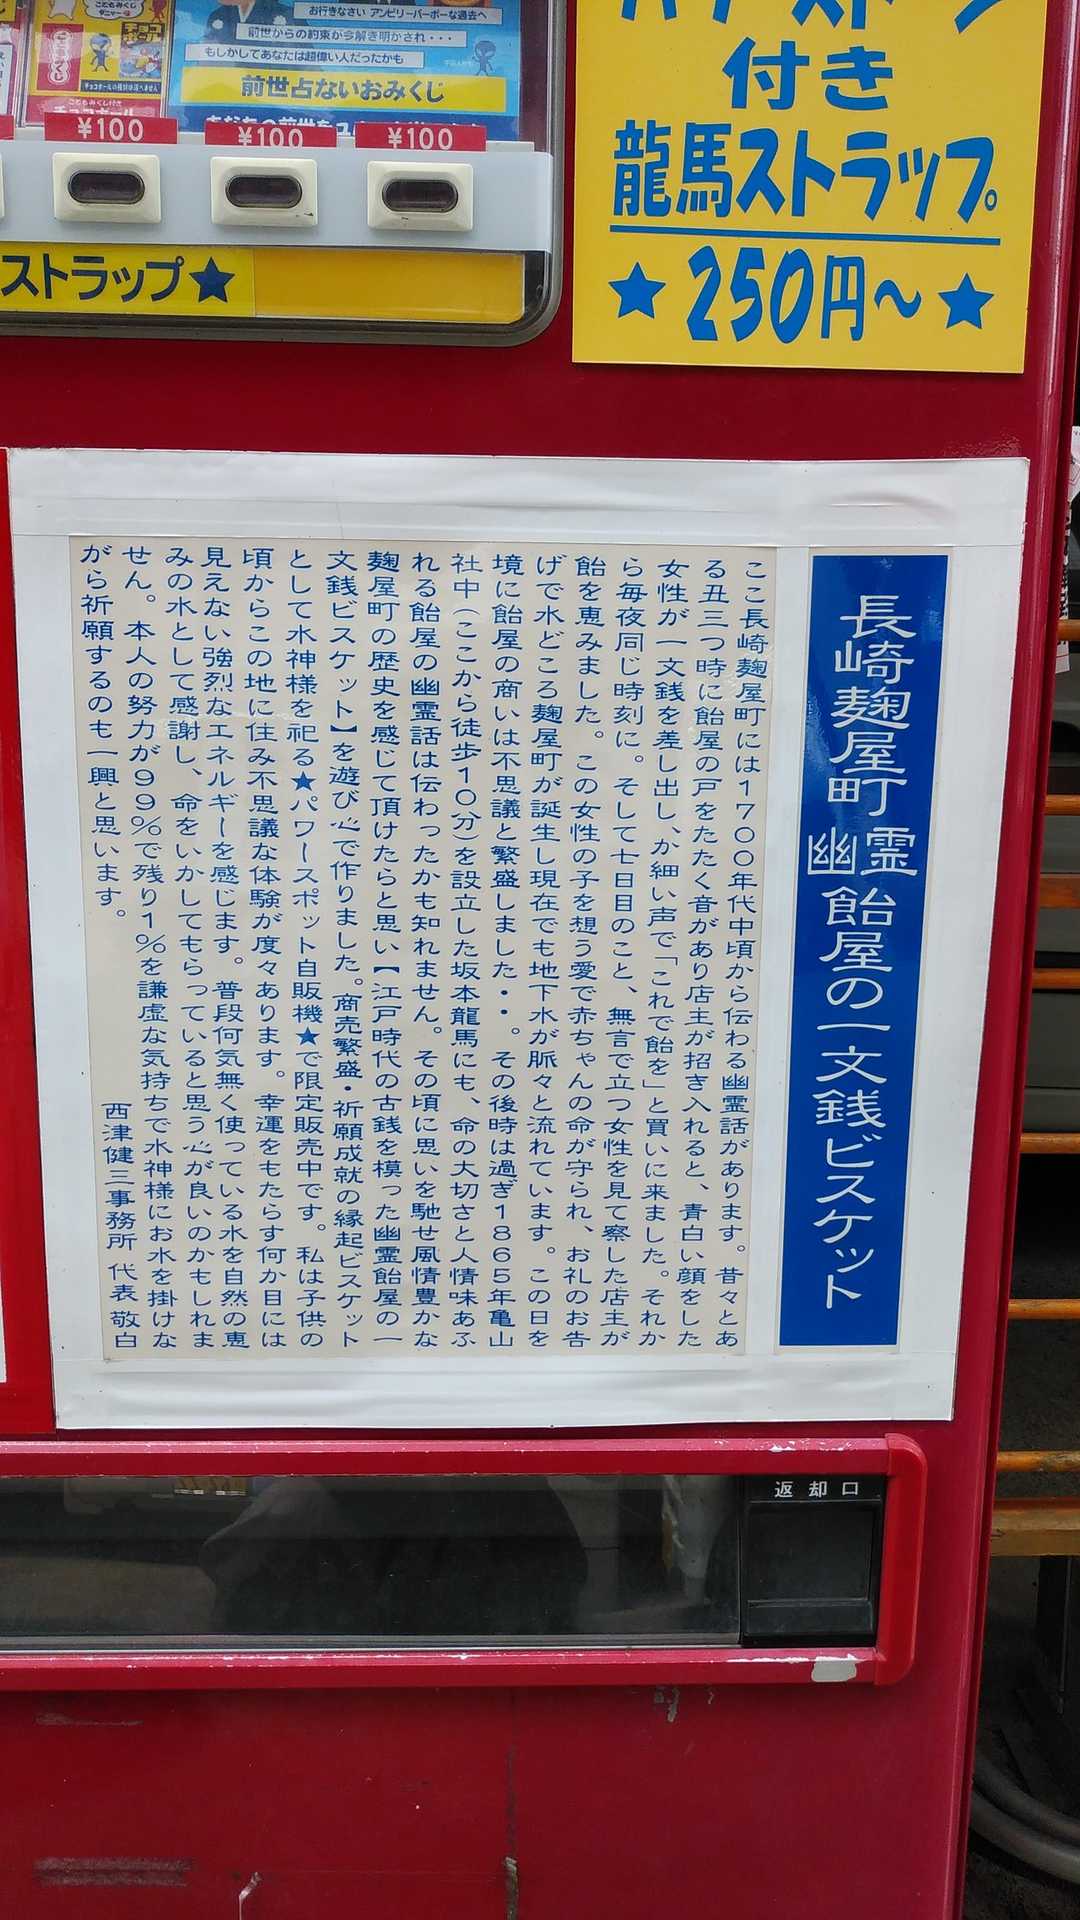 お行きなさい アンビリーバーボーな過去へ
前世からの約束が今解き明かされ・・・
もしかしてあなたは超偉い人だったかも
前世占ないおみくじ
こどもみくじ
チョコボールの種類は選べません
こどもみくじ付き
¥100
¥100
¥100
ストラップ★
付き
龍馬ストラップ。
★250円～★
長崎麹屋町 幽霊飴屋の一文銭ビスケット
ここ長崎麹屋町には1700年代中頃から伝わる幽霊話があります。昔々とあ
る丑三つ時に飴屋の戸をたたく音があり店主が招き入れると、青白い顔をした
女性が一文銭を差し出し、か細い声で「これで飴を」と買いに来ました。それか
ら毎夜同じ時刻に。そして七日目のこと、無言で立つ女性を見て察した店主が
飴を恵みました。この女性の子を想う愛で赤ちゃんの命が守られ、お礼のお告
げで水どころ麹屋町が誕生し現在でも地下水が脈々と流れています。この日を
境に飴屋の商いは不思議と繁盛しました・・。その後時は過ぎ1865年亀山
社中（ここから徒歩10分）を設立した坂本龍馬にも、命の大切さと人情味あふ
れる飴屋の幽霊話は伝わったかも知れません。その頃に思いを馳せ風情豊かな
麹屋町の歴史を感じて頂けたらと思い【江戸時代の古銭を模った幽霊飴屋の一
文銭ビスケット】を遊び心で作りました。商売繁盛・祈願成就の縁起ビスケット
として水神様を祀る★パワースポット自販機★で限定販売中です。私は子供の
頃からこの地に住み不思議な体験が度々あります。幸運をもたらす何か目には
見えない強烈なエネルギーを感じます。普段何気無く使っている水を自然の恵
みの水として感謝し、命をいかしてもらっていると思う心が良いのかもしれま
せん。本人の努力が99％で残り1％を謙虚な気持ちで水神様にお水を掛けな
がら祈願するのも一興と思います。
西津健三事務所 代表 敬白
返却口